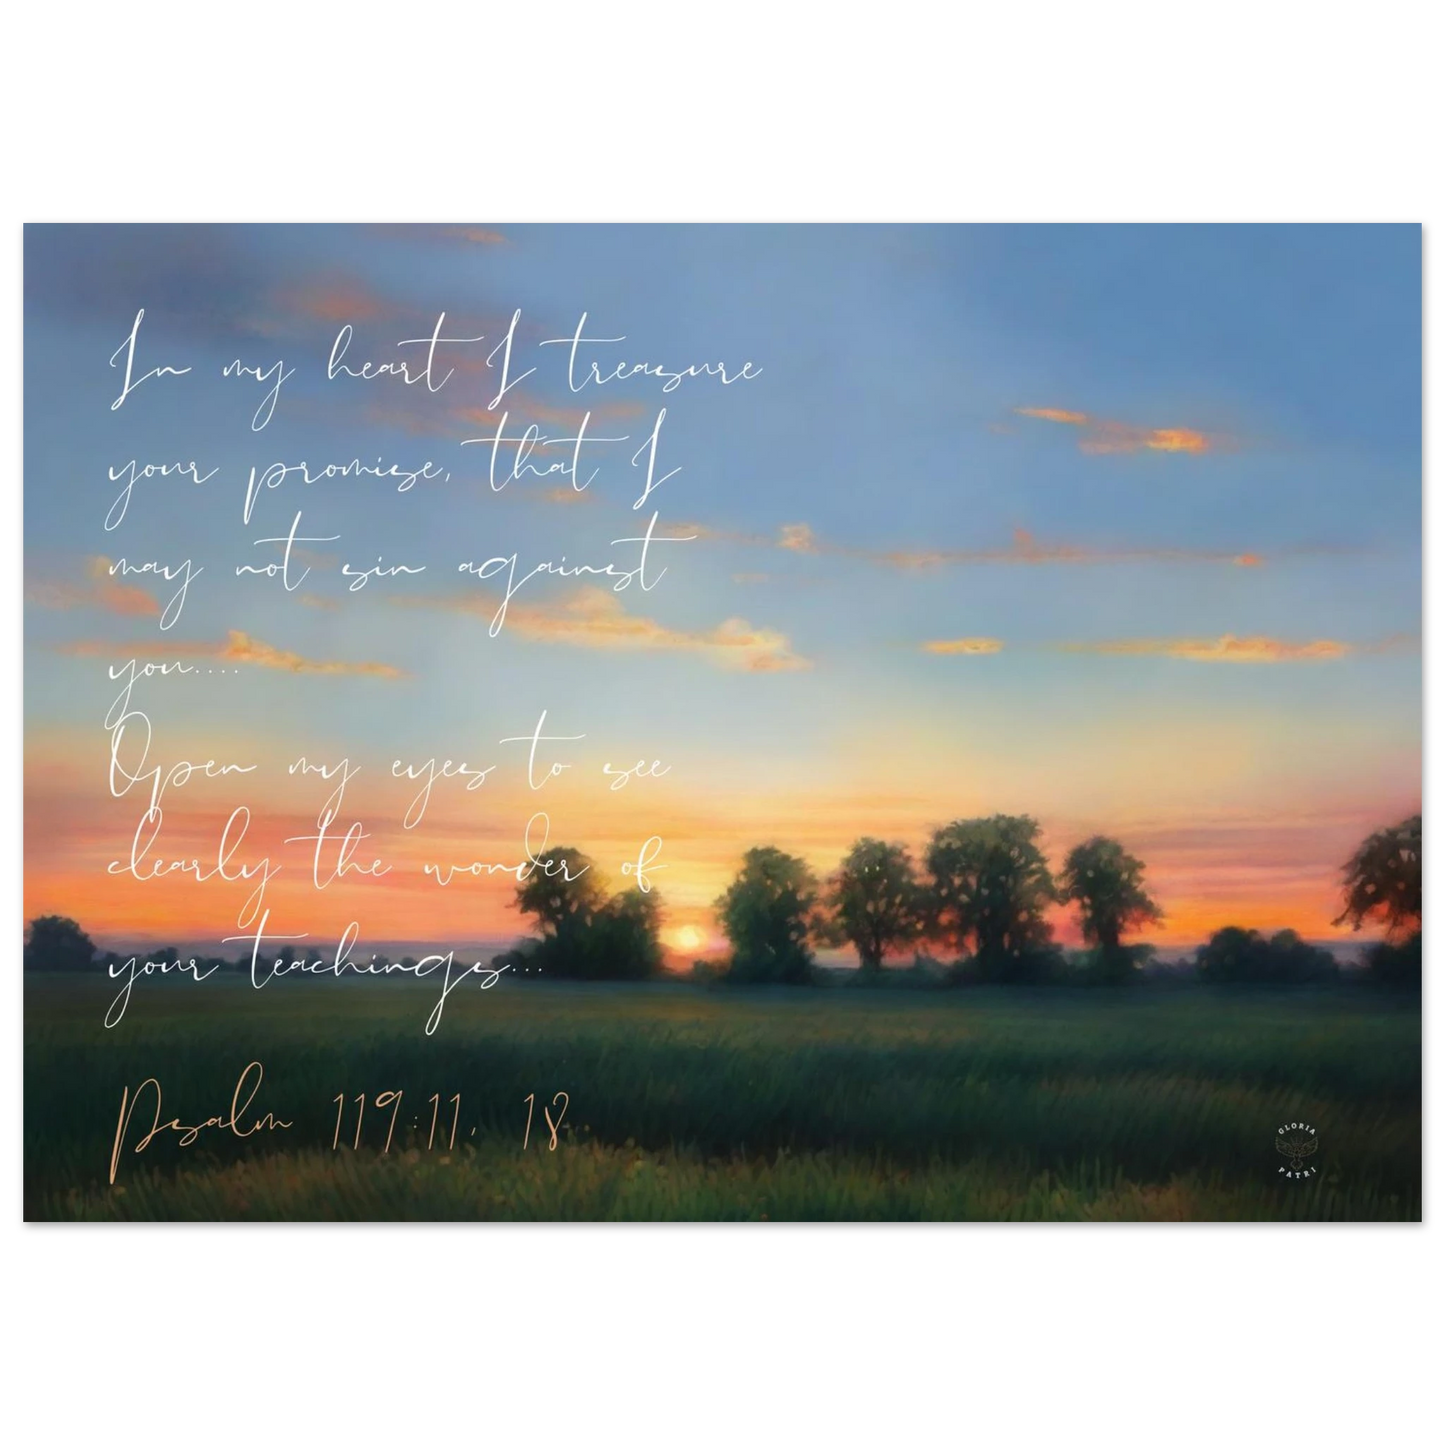 In my heart I treasure
your promise, that I
may not sin against
you....
Open my eyes to see
clearly the wonder of
your teachings...
Psalm 119:11, 18
GLORIA
PATRI